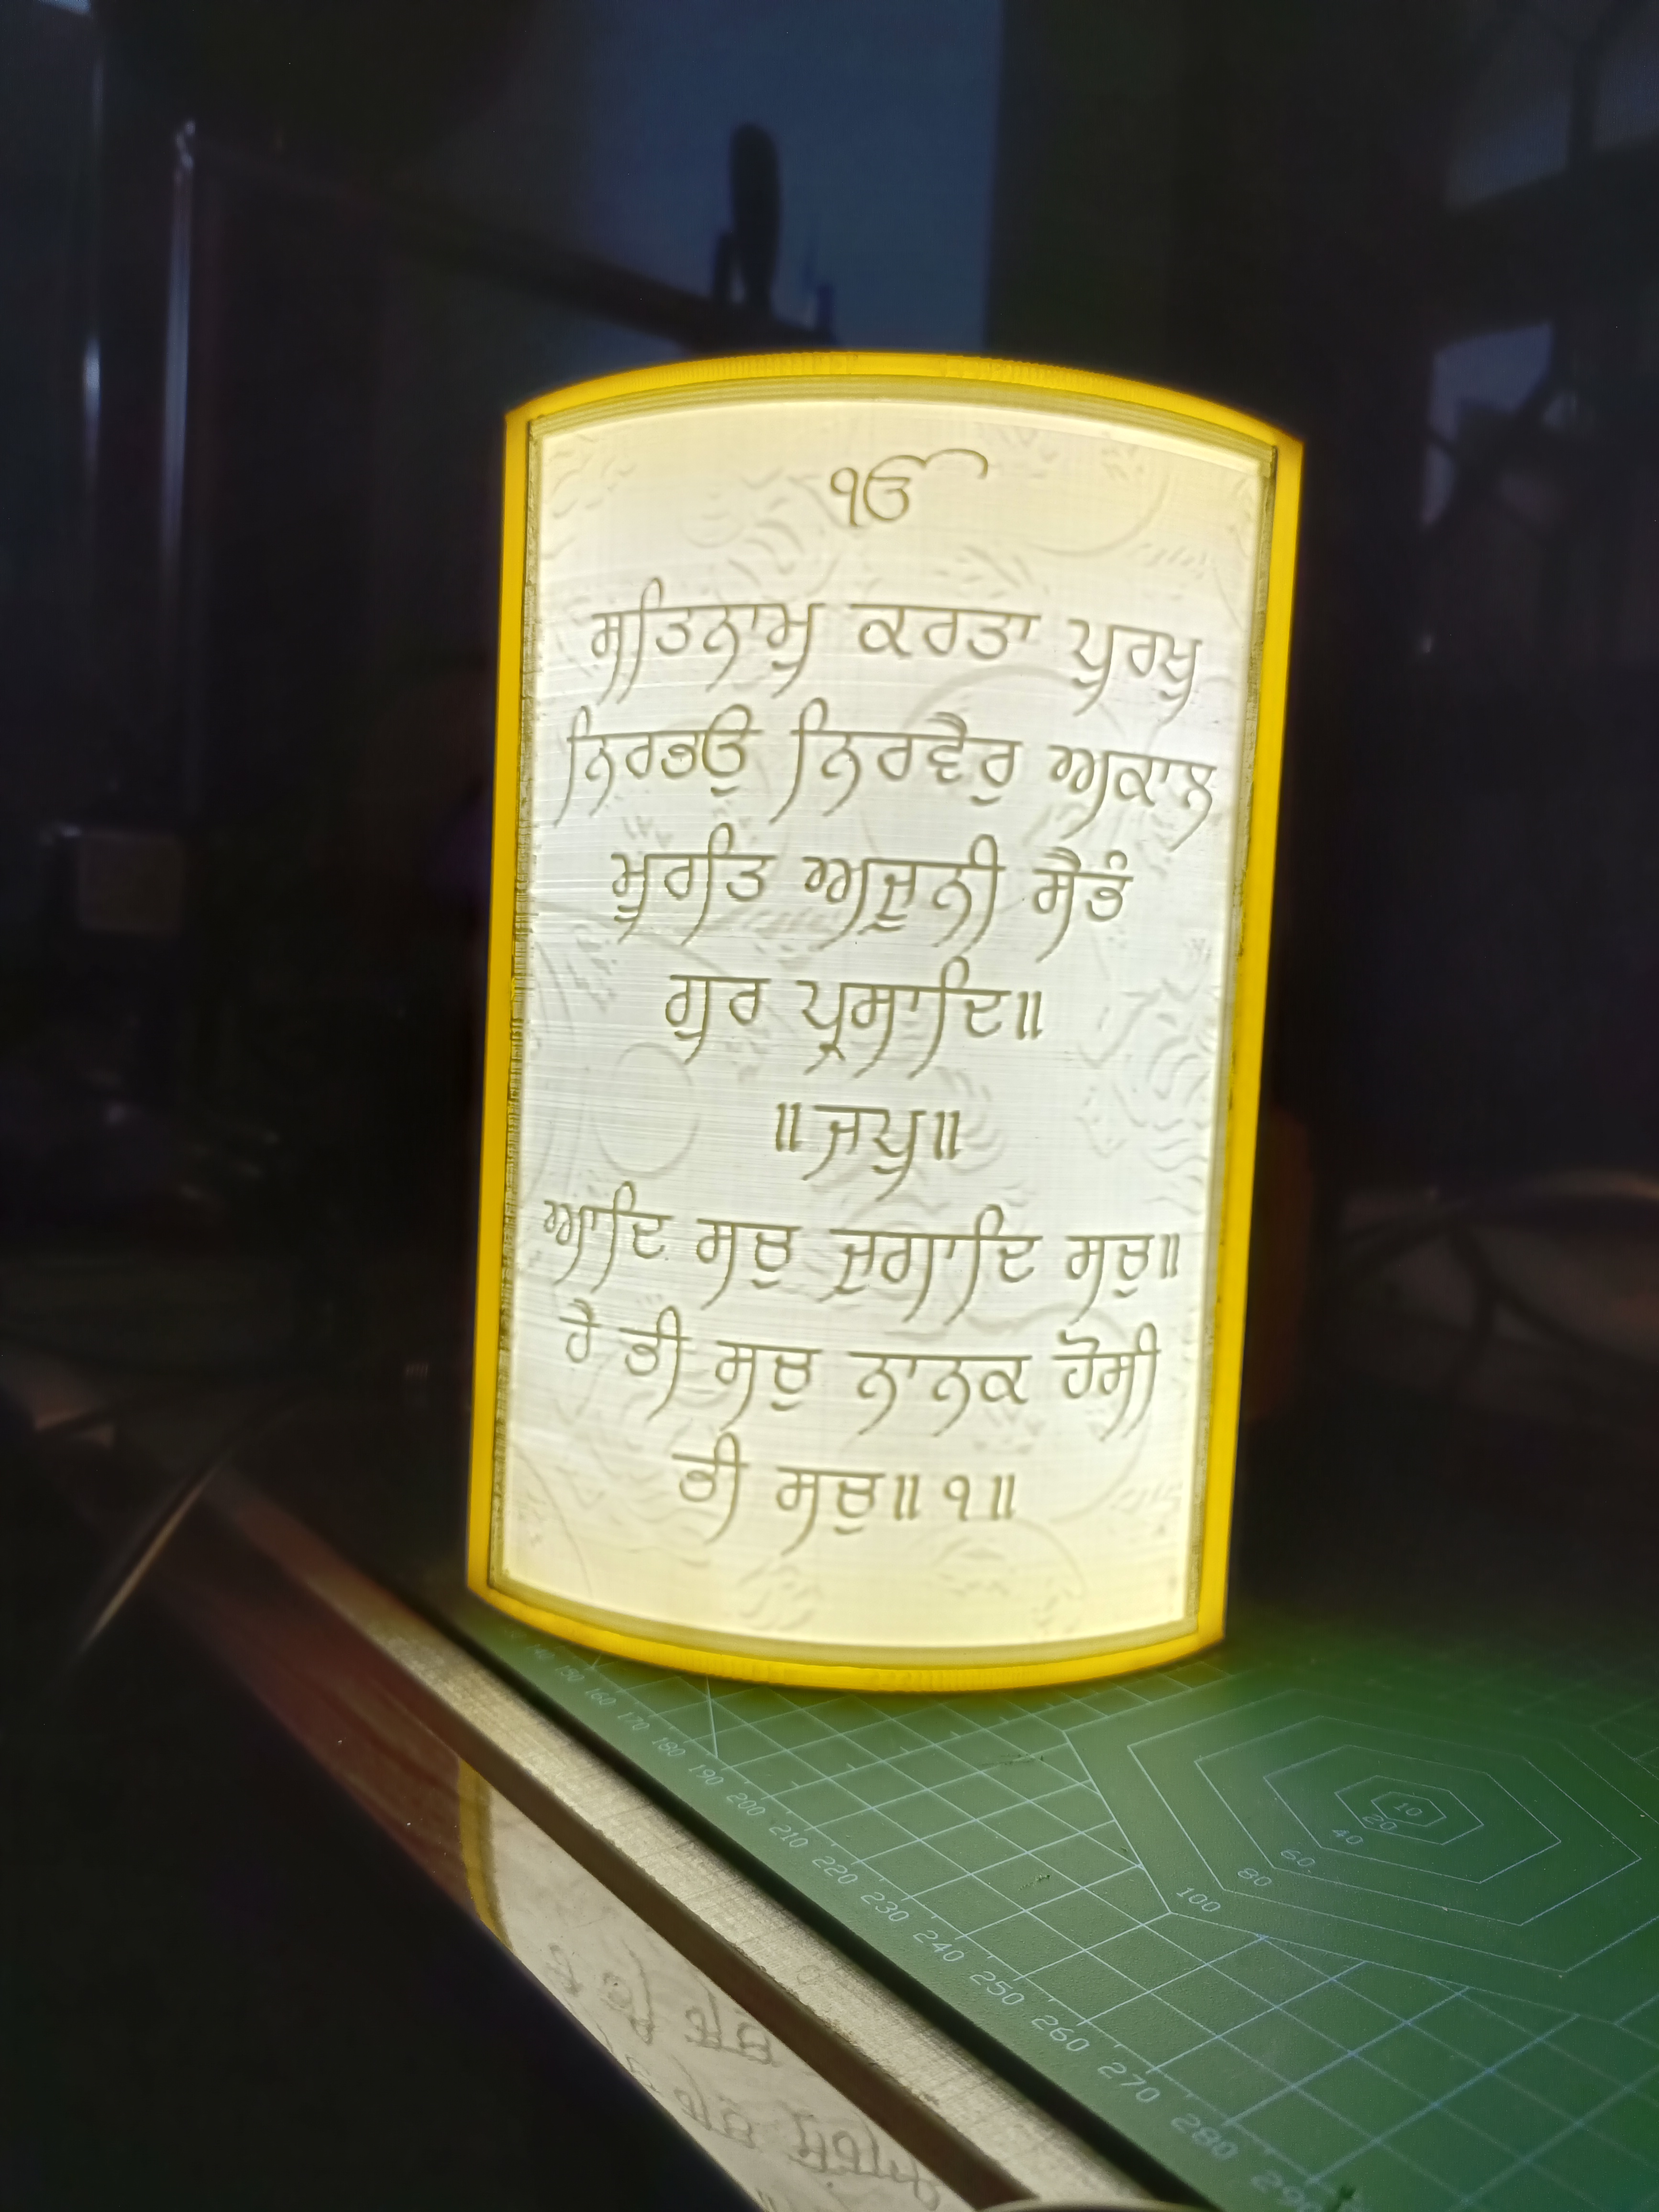 ੴ
ਸਤਿਨਾਮੁ ਕਰਤਾ ਪੁਰਖੁ
ਨਿਰਭਉ ਨਿਰਵੈਰੁ ਅਕਾਲ
ਮੁਰਤਿ ਅਜੂਨੀ ਸੈਭੰ
ਗੁਰ ਪ੍ਰਸਾਦਿ॥
॥ਜਪੁ॥
ਆਦਿ ਸਚੁ ਜੁਗਾਦਿ ਸਚੁ॥
ਹੈ ਭੀ ਸਚੁ ਨਾਨਕ ਹੋਸੀ
ਭੀ ਸਚੁ॥੧॥
140
150
160
170
180
190
200
210
220
230
240
250
260
270
280
290
10
20
40
60
80
100